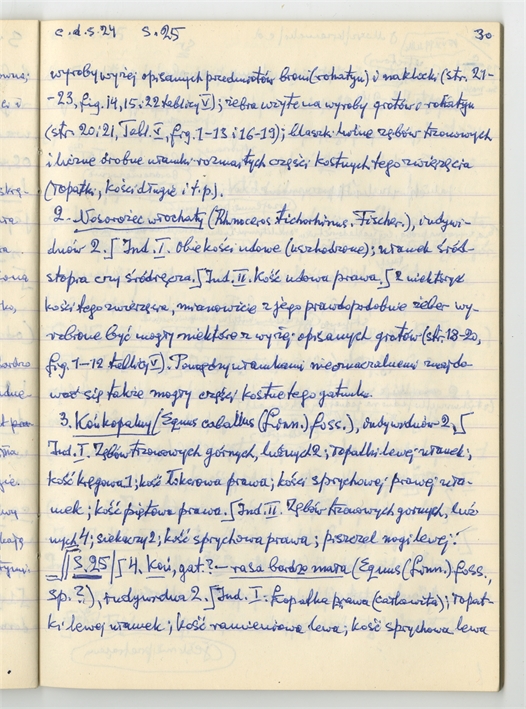 c.d.s.24 S.25 30
wyroby wyżej opisanych przedmiotów broni (rohatyn) i maklecki (str. 21-
-23, fig. 14, 15 i 22 tablicy V); żebra użyte na wyroby grotów i rohatyn
(str. 20, 21, Tabl. V, fig. 1-13 i 16-19); blaszki luźne zębów trzonowych
i liczne drobne ułamki rozmaitych części kostnych tego zwierzęcia
(łopatki, kości długie i t.p.).
2. Nosorożec włochaty (Rhinoceros tichorhinus. Fischer.), indywi-
duów 2. ∫ Ind. I. Obie kości udowe (uszkodzone); ułamek śród-
stopia czy śródręcza. ∫ Ind. II. Kość udowa prawa. ∫ Z niektórych
kości tego zwierzęcia, mianowicie z jego prawdopodobnie żeber wy-
robione być mogły niektóre z wyżej opisanych grotów (str. 18-20,
fig. 1-12 tablicy V). Pomiędzy ułamkami nieoznaczalnemi znajdo-
wać się także mogły części kostne tego gatunku.
3. Koń kopalny (Equus caballus (Linn.) foss.), indywiduów 2, ∫
Ind. I. Zębów trzonowych górnych, luźnych 2; łopatki lewej ułamek;
kość kręgowa 1; kość łokciowa prawa; kości sprychowej prawej uła-
mek; kość piętowa prawa. ∫ Ind. II. Zębów trzonowych górnych, luź-
nych 4; siekaczy 2; kość sprychowa prawa; piszczel nogi lewej.
// S. 25 / ∫ 4. Koń, gat.? – rasa bardzo mała (Equus (Linn.) foss.,
sp. ?), indywidua 2. ∫ Ind. I. Łopatka prawa (całkowita); łopat-
ki lewej ułamek; kość ramieniowa lewa; kość sprychowa lewa